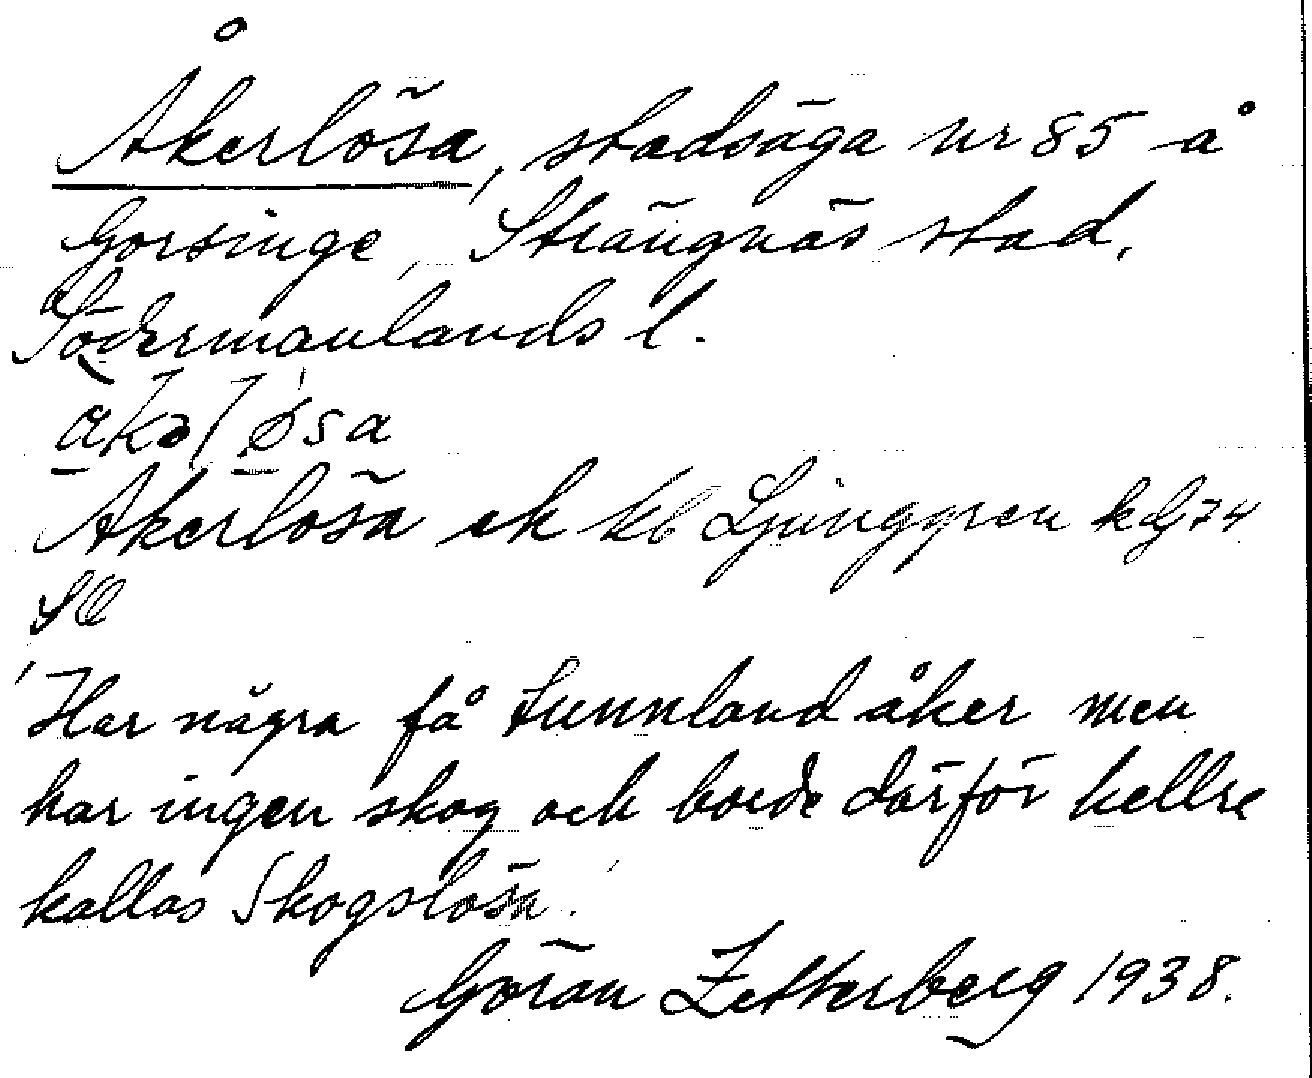 Åkerlösa, stadsäga nr 85 å
Gorsinge, Strängnäs stad,
Södermanlands l.
Åkerlösa ek kb Ljunggren
'Har några få tunnland åker men
har ingen skog och borde därför hellre
kallas Skogslösa.'
Göran Zetterberg 1938.